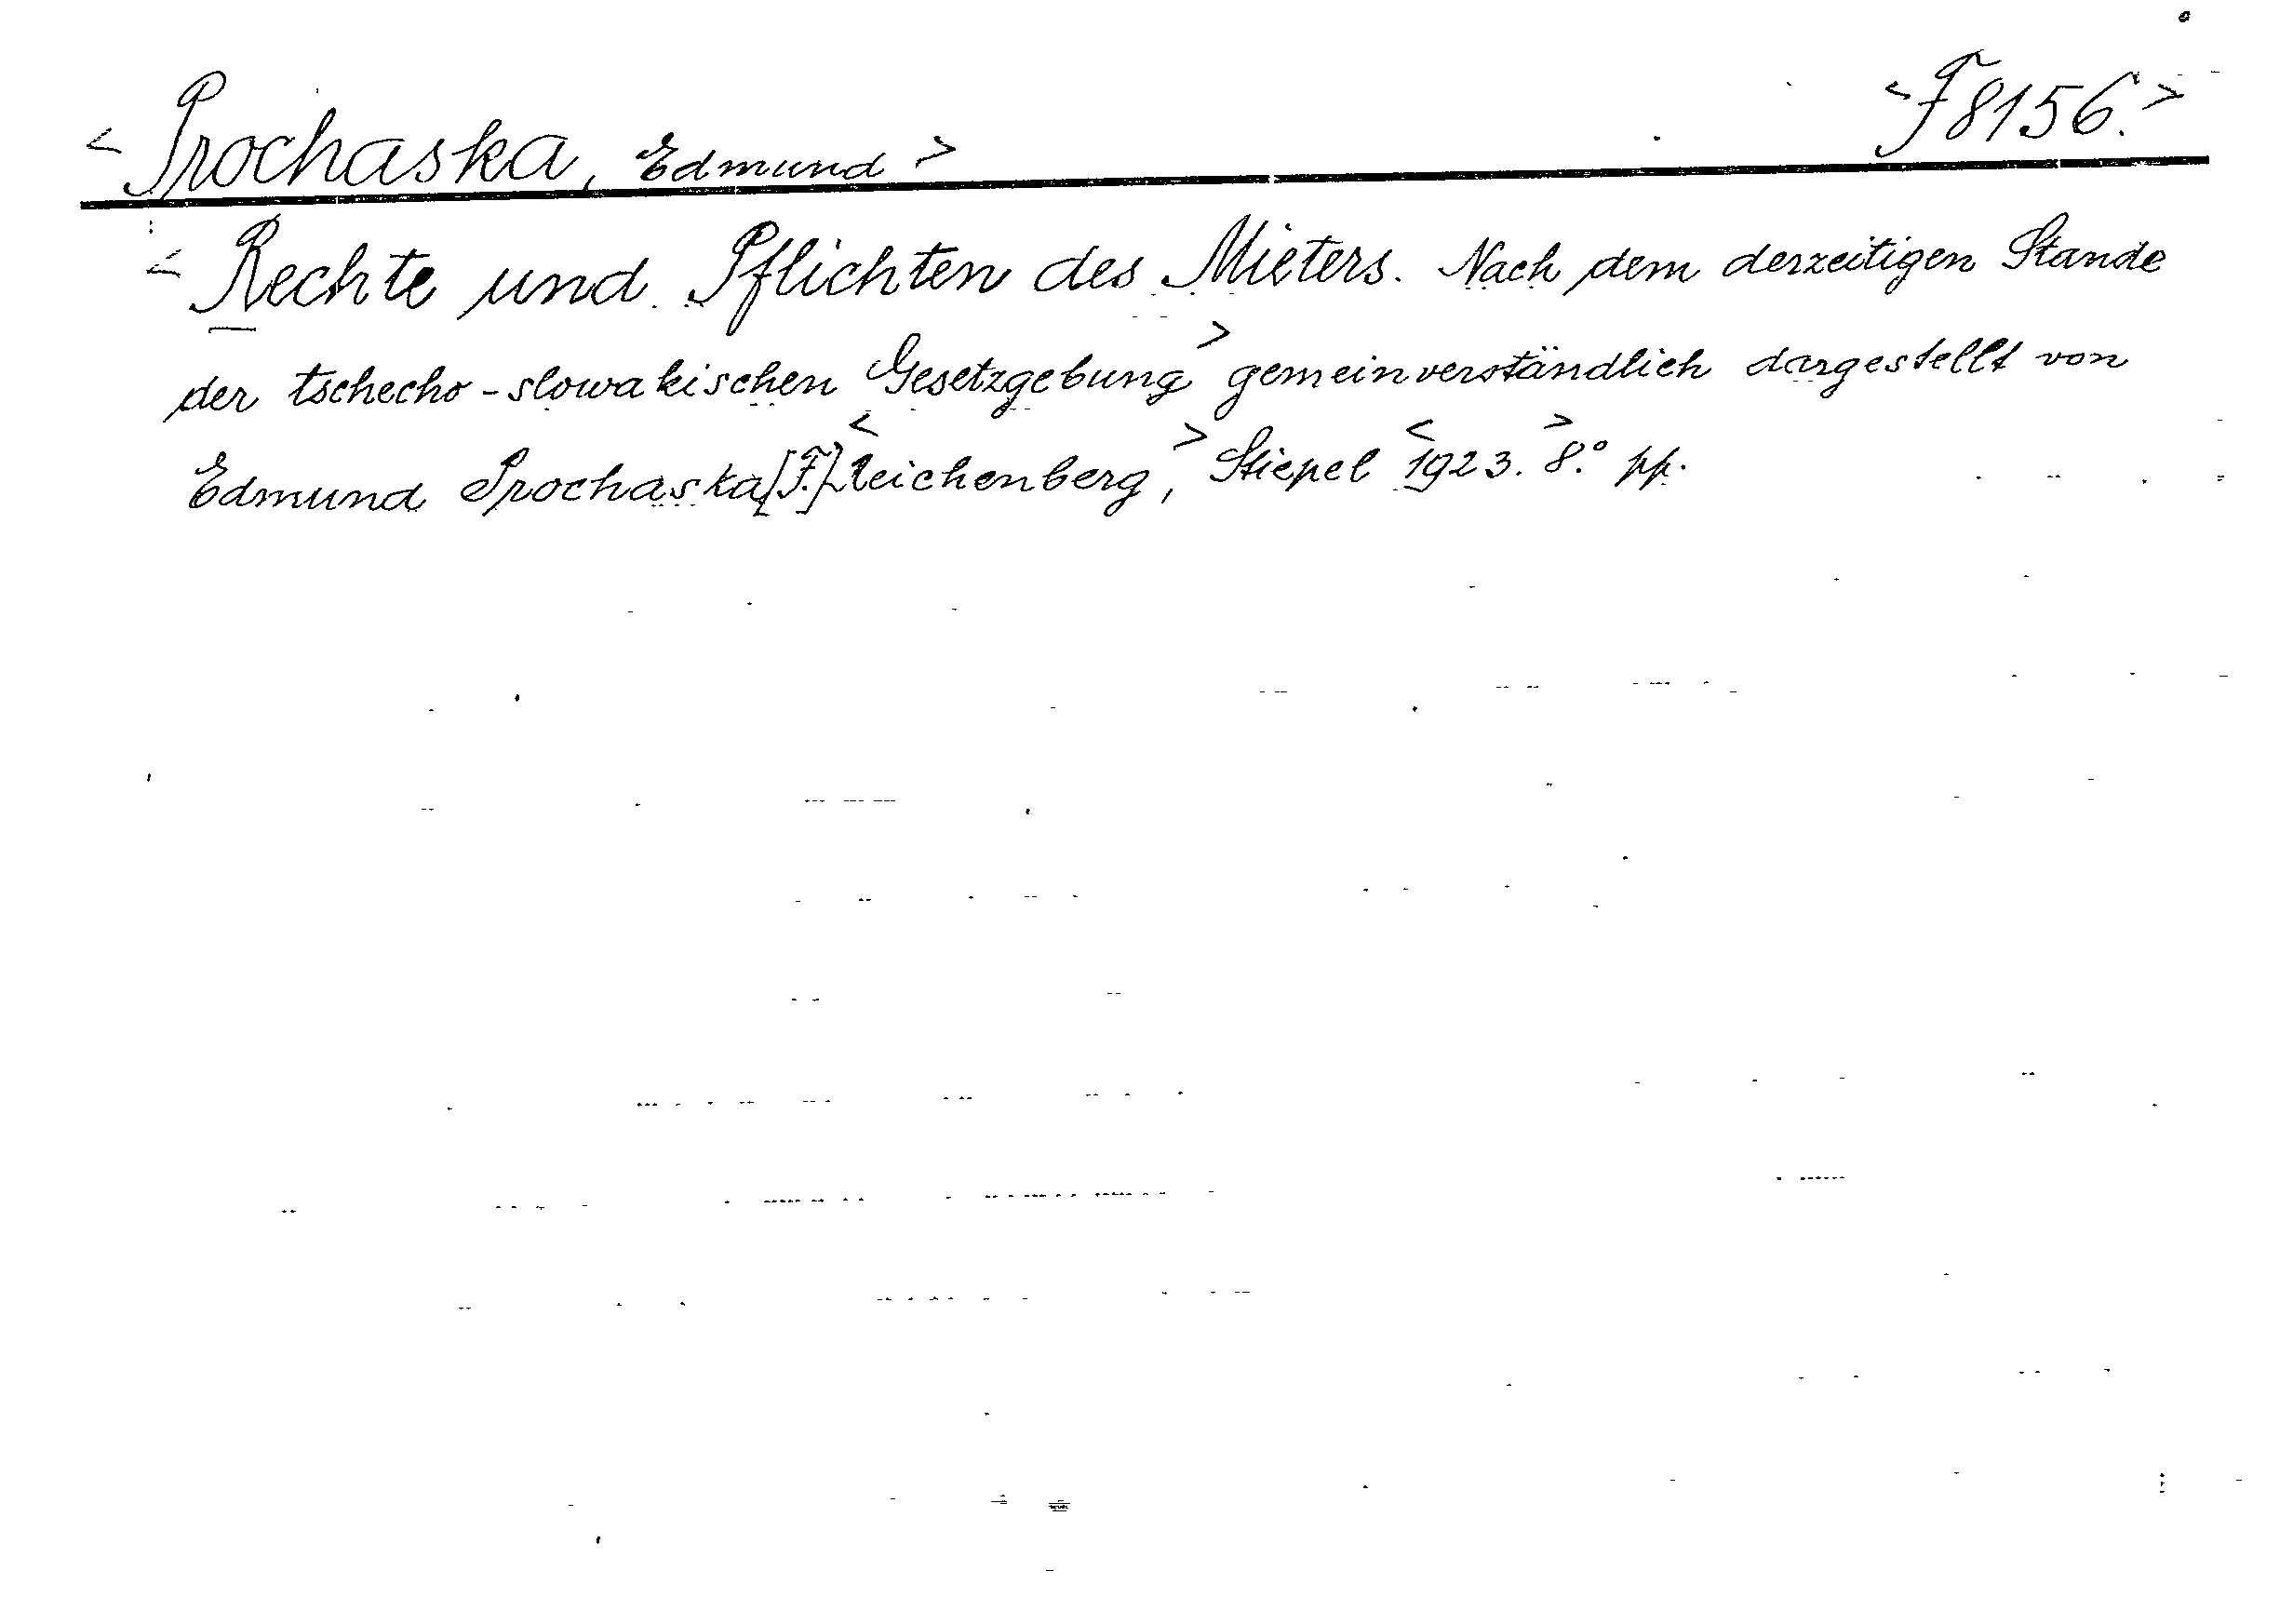 <Prochaska, Edmund> <F 8156.>
<Rechte und Pflichten des Mieters. Nach dem derzeitigen Stande
der tschecho-slowakischen Gesetzgebung> gemeinverständlich dargestellt von
Edmund Prochaska [F.] <Reichenberg,> Stiepel <1923. 8.°> pp.